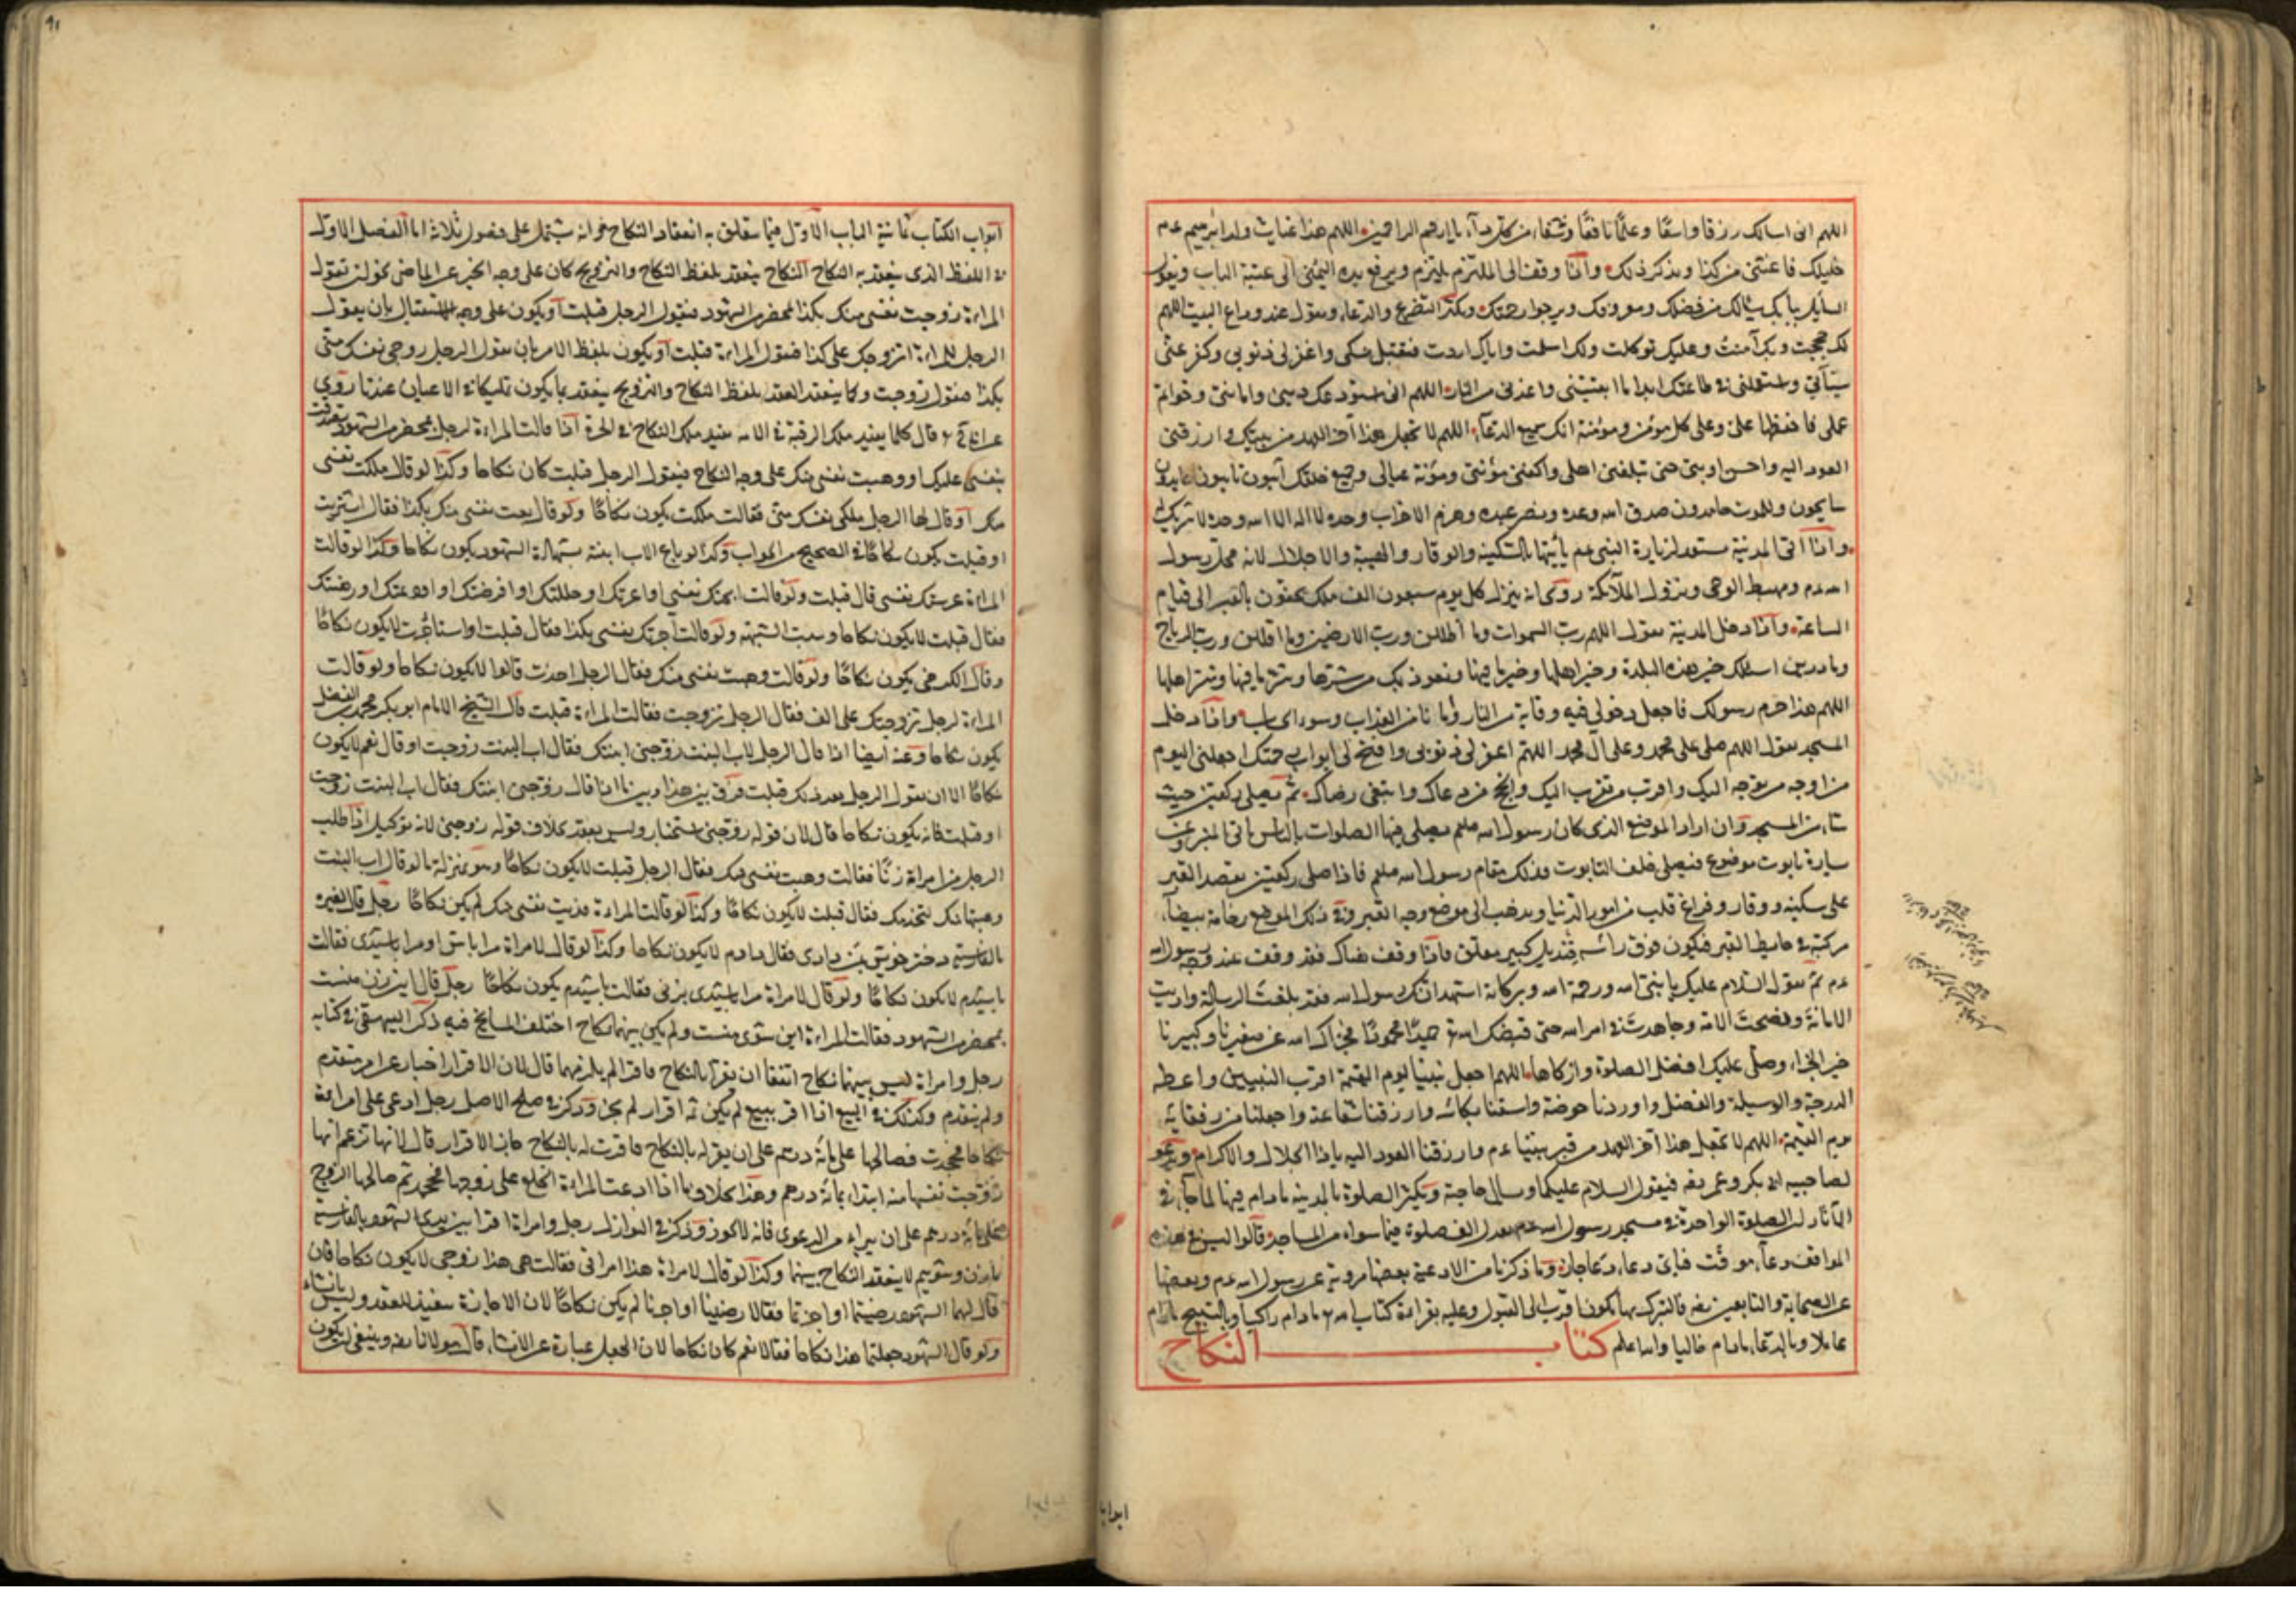 اللهم انى اسالك رزقا واسعًا وعلمًا نافعًا وشفاء من كل داء يا ارحم الراحمين اللهم هذا غياث ولد ابرهيم عم
خليلك فاعتقنى من كذا ويذكر ذلك واذا وقف الى الملتزم يلتزم ويرفع يده اليمنى الى عتبة الباب ويقول
السايل ببابك يسالك من فضلك ومعروفك ويرجوا رحمتك ويكثر التضرع والدعاء ويقول عند وداع البيت اللهم
لك حججت وبك آمنت وعليك توكلت ولك اسلمت واياك اردت فتقبل نسكى واغفر لى ذنوبى وكفر عنى
سيآتى واستعملنى فى طاعتك ابدا ما ابقيتنى واعذنى من النار اللهم انى استودعك دينى وامانتى وخواتم
عملى فاحفظها على وعلى كل مؤمن ومؤمنة انك سميع الدعآء اللهم لا تجعل هذا آخر العهد من بيتك وارزقنى
العود اليه واحسن اوبتى حتى تبلغنى اهلى واكفنى مؤنتى ومؤنة عيالى وجميع خلقك آئبون تايبون عابدون
سايحون ولربنا حامدون صدق الله وعده ونصر عبده وهزم الاحزاب وحده لا اله الا الله وحده لا شريك له
واذا اتى المدينة مستعد لزيارة النبى عم يأتيها بالسكينة والوقار والهيبة والاجلال لانه محل رسول
الله عم ومهبط الوحى ونزول الملآئكة روى انه ينزل كل يوم سبعون الف ملك يحفون بالقبر الى قيام
الساعة واذا دخل المدينة يقول اللهم رب السموات وما اظللن ورب الارضين وما اقللن ورب الرياح
وما ذرين اسئلك خير هذه البلدة وخير اهلها وخير ما فيها ونعوذ بك من شرها وشر ما فيها وشر اهلها
اللهم هذا حرم رسولك فاجعل دخولى فيه وقاية من النار وأمانا من العذاب وسوء الحساب واذا دخل
المسجد يقول اللهم صلى على محمد وعلى آل محمد اللهم اغفر لى ذنوبى وافتح لى ابواب رحمتك اجعلنى اليوم
من اوجه من توجه اليك واقرب من تقرب اليك وانجح من دعاك وابتغى رضاك ثم يصلى ركعتين حيث
شاء من المسجد وان اراد الموضع الذى كان رسول الله صلعم يصلى فيها الصلوات بالناس ياتى المنبر وعن
يساره تابوت موضوع فيصلى خلف التابوت وذلك مقام رسول الله صلعم فاذا صلى ركعتين يقصد القبر
على سكينه ووقار وفراغ قلب من امور الدنيا ويذهب الى موضع وجه القبر وفى ذلك الموضع رخامة بيضآء
مركبة فى حايط القبر فيكون فوق رائسه قنديل كبير معلق فاذا وقف هناك فقد وقف عند وجه رسول الله
عم ثم يقول السلام عليك يا نبى الله ورحمة الله وبركاته اشهد انك رسول الله فقد بلغت الرسالة واديت
الامانة ونصحت الامة وجاهدت فى امر الله حتى قبضك الله تع حميدًا محمودًا فجزاك الله عن صغيرنا وكبيرنا
خير الجزاء وصلى عليك افضل الصلوة وازكاها اللهم اجعل نبينا يوم القيمة اقرب النبيين واعطه
الدرجة والوسيلة والفضل واوردنا حوضه واسقنا بكائسه وارزقنا شفاعته واجعلنا من رفقايه
يوم القيمة اللهم لا تجعل هذا آخر العهد من قبر نبينا عم وارزقنا العود اليه يا ذا الجلال والاكرام ويدعو
لصاحبيه ابى بكر وعمر رضه فيقول السلام عليكما ويسال حاجته ويكثر الصلوة بالمدينه مادام فيها لما جآء فى
الآثار ان الصلوة الواحدة فى مسجد رسول الله عم تعدل الف صلوة فيما سواه من المساجد قالوا ليس فى هذه
المواقف دعاء موقت فباى دعاء دعا جاز وما ذكرنا من الادعية بعضها مروية عن رسول الله عم وبعضها
عن الصحابة والتابعين رضه فالتبرك بها يكون اقرب الى القبول وعليه بقراءة كتاب الله تع مادام راكبا وبالتسبيح مادام
عاملا وبالدعاء مادام خاليا والله اعلم كتاب النكاح
ابواب
ابواب الكتاب ثمانية الباب الاول فيما يتعلق به انعقاد النكاح وانه يشتمل على فصول ثلاثة اما الفصل الاول
فى اللفظ الذى ينعقد به النكاح النكاح ينعقد بلفظ النكاح والتزويج كان على وجه الخبر عن الماضى نحو ان تقول
المراءة زوجت نفسى منك بكذا بمحضر من الشهود فيقول الرجل قبلت او يكون على وجه الاستقبال بان يقول
الرجل للمراءة اتزوجك على كذا فتقول المراءة قبلت او يكون بلفظ الامر بان يقول الرجل زوجى نفسك منى
بكذا فتقول زوجت وكما ينعقد العقد بلفظ النكاح والتزويج ينعقد بما يكون تمليكا فى الاعيان عندنا روى
قال كلما يفيد ملك الرقبة فى الامة يفيد ملك النكاح فى الحرة اذا قالت المراءة لرجل بمحضر من الشهود تصدقت
بنفسى عليك او وهبت نفسى منك على وجه النكاح فيقول الرجل قبلت كان نكاحا وكذا لو قال ملكت نفسى
منك او قال لها الرجل ملكى نفسك منى فقالت ملكت يكون نكاحًا ولو قال بعت نفسى منك بكذا فقال اشتريت
او قبلت يكون نكاحًا فى الصحيح من الجواب وكذا لو باع الاب ابنته بشهادة الشهود يكون نكاحا وكذا لو قالت
المراءة عرستك نفسى قال قبلت ولو قالت ابحتك نفسى او اعرتك او حللتك او اقرضتك او اودعتك او رهنتك
فقال قبلت لا يكون نكاحا ويثبت الشبهة ولو قالت آجرتك نفسى بكذا فقال قبلت او استاجرت لا يكون نكاحًا
وقال الكرخى يكون نكاحًا ولو قالت وهبت نفسى منك فقال الرجل اخذت قالوا لا يكون نكاحا ولو قالت
المراءة لرجل تزوجتك على الف فقال الرجل تزوجت فقالت المراءة قبلت قال الشيخ الامام ابو بكر محمد بن الفضل
يكون نكاحا وعنه ايضا اذا قال الرجل لاب البنت زوجنى ابنتك فقال اب البنت زوجت او قال نعم لا يكون
نكاحًا الا ان يقول الرجل بعد ذلك قبلت فرق بين هذا وبين ما اذا قال زوجنى ابنتك فقال اب البنت زوجت
او قبلت فانه يكون نكاحا قال لان قوله زوجتنى استخبار وليس بعقد بخلاف قوله زوجنى لانه توكيل اذا طلب
الرجل من امراة زنًا فقالت وهبت نفسى منك فقال الرجل قبلت لا يكون نكاحًا وهو بمنزلة ما لو قال اب البنت
وهبتها منك لتخدمك فقال قبلت لا يكون نكاحًا وكذا لو قالت المراءة فديت نفسى منك لم يكن نكاحًا رجل قال لغيره
بالفارسية دختر خويش بمن دادى فقال دادم لا يكون نكاحا وكذا لو قال لامراة مرا باش او مرا باشيدى فقالت
باشيدم لا يكون نكاحًا ولو قال لامراة مرا باشيدى بزنى فقالت باشيدم يكون نكاحًا رجل قال اين زن منست
بمحضر من الشهود فقالت المراءة اين شوى منست ولم يكن بينهما نكاح اختلف المشايخ فيه ذكر البيهقى فى كتابه
رجل وامراة ليس بينهما نكاح اتفقا ان يقرآ بالنكاح فاقرا لم يلزمهما قال لان الاقرار اخبار عن امر متقدم
ولم يتقدم وكذلك فى البيع اذا اقر ببيع لم يكن ثم اقرار لم يجز وذكر فى صلح الاصل رجل ادعى على امراءة
نكاحا فجحدت فصالحها على مائة درهم على ان يقر له بالنكاح فاقرت له بالنكاح جاز الاقرار قال لانها تزعم انها
زوجت نفسها منه ابتداء بمائة درهم وهذا بخلاف ما اذا ادعت المراءة الخلع على زوجها فجحد ثم صالحها الزوج
على مائة درهم على ان يبراء من الدعوى فانه لا يجوز وذكر فى النوازل رجل وامراة اقرا بين يدى الشهود بالفارسية
ما زن وشوييم لا ينعقد النكاح بينهما وكذا لو قال لامراة هذا امراتى فقالت هى هذا زوجى لا يكون نكاحا فان
قال لهما الشهود رضيتما او اجزتما فقالا رضينا او اجزنا لم يكن نكاحًا لان الاجازة تنفيذ للعقد وليس بانشاء
ولو قال الشهود جعلتما هذا نكاحا فقالا نعم كان نكاحا لان الجعل عبارة عن الانشاء قال مولانا رضه وينبغى ان يكون